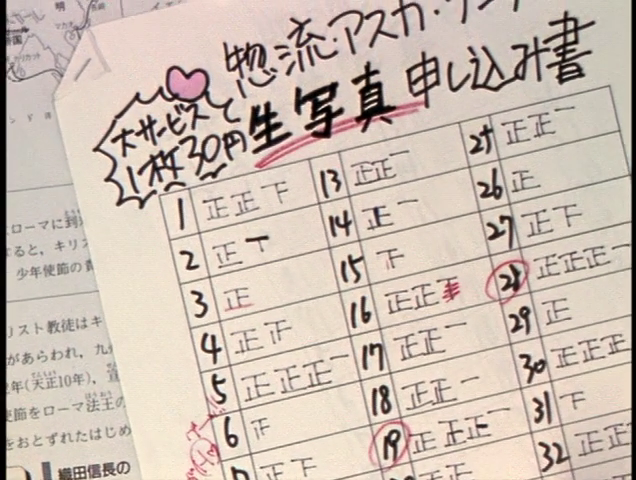 惣流・アスカ・
生写真申し込み書
大サービス
1枚30円
1 正正下
2 正丅
3 正
4 正
5 正正正一
6
7 正下
13 正正一
14 正一
15 下
16 正正
17 正正一
18 正正一
19 正正正一
25 正正一
26 正
27 正下
28 正正正一
29 正
30 正正正
31 下
32 正正
明
マカオ
帝国
カリカット
ンド洋
ローマに到
ると，キリス
少年使節の
リスト教徒はキ
があらわれ，九
年(天正10年)，宣
使節をローマ法王の
をおとずれたはじめ
織田信長の